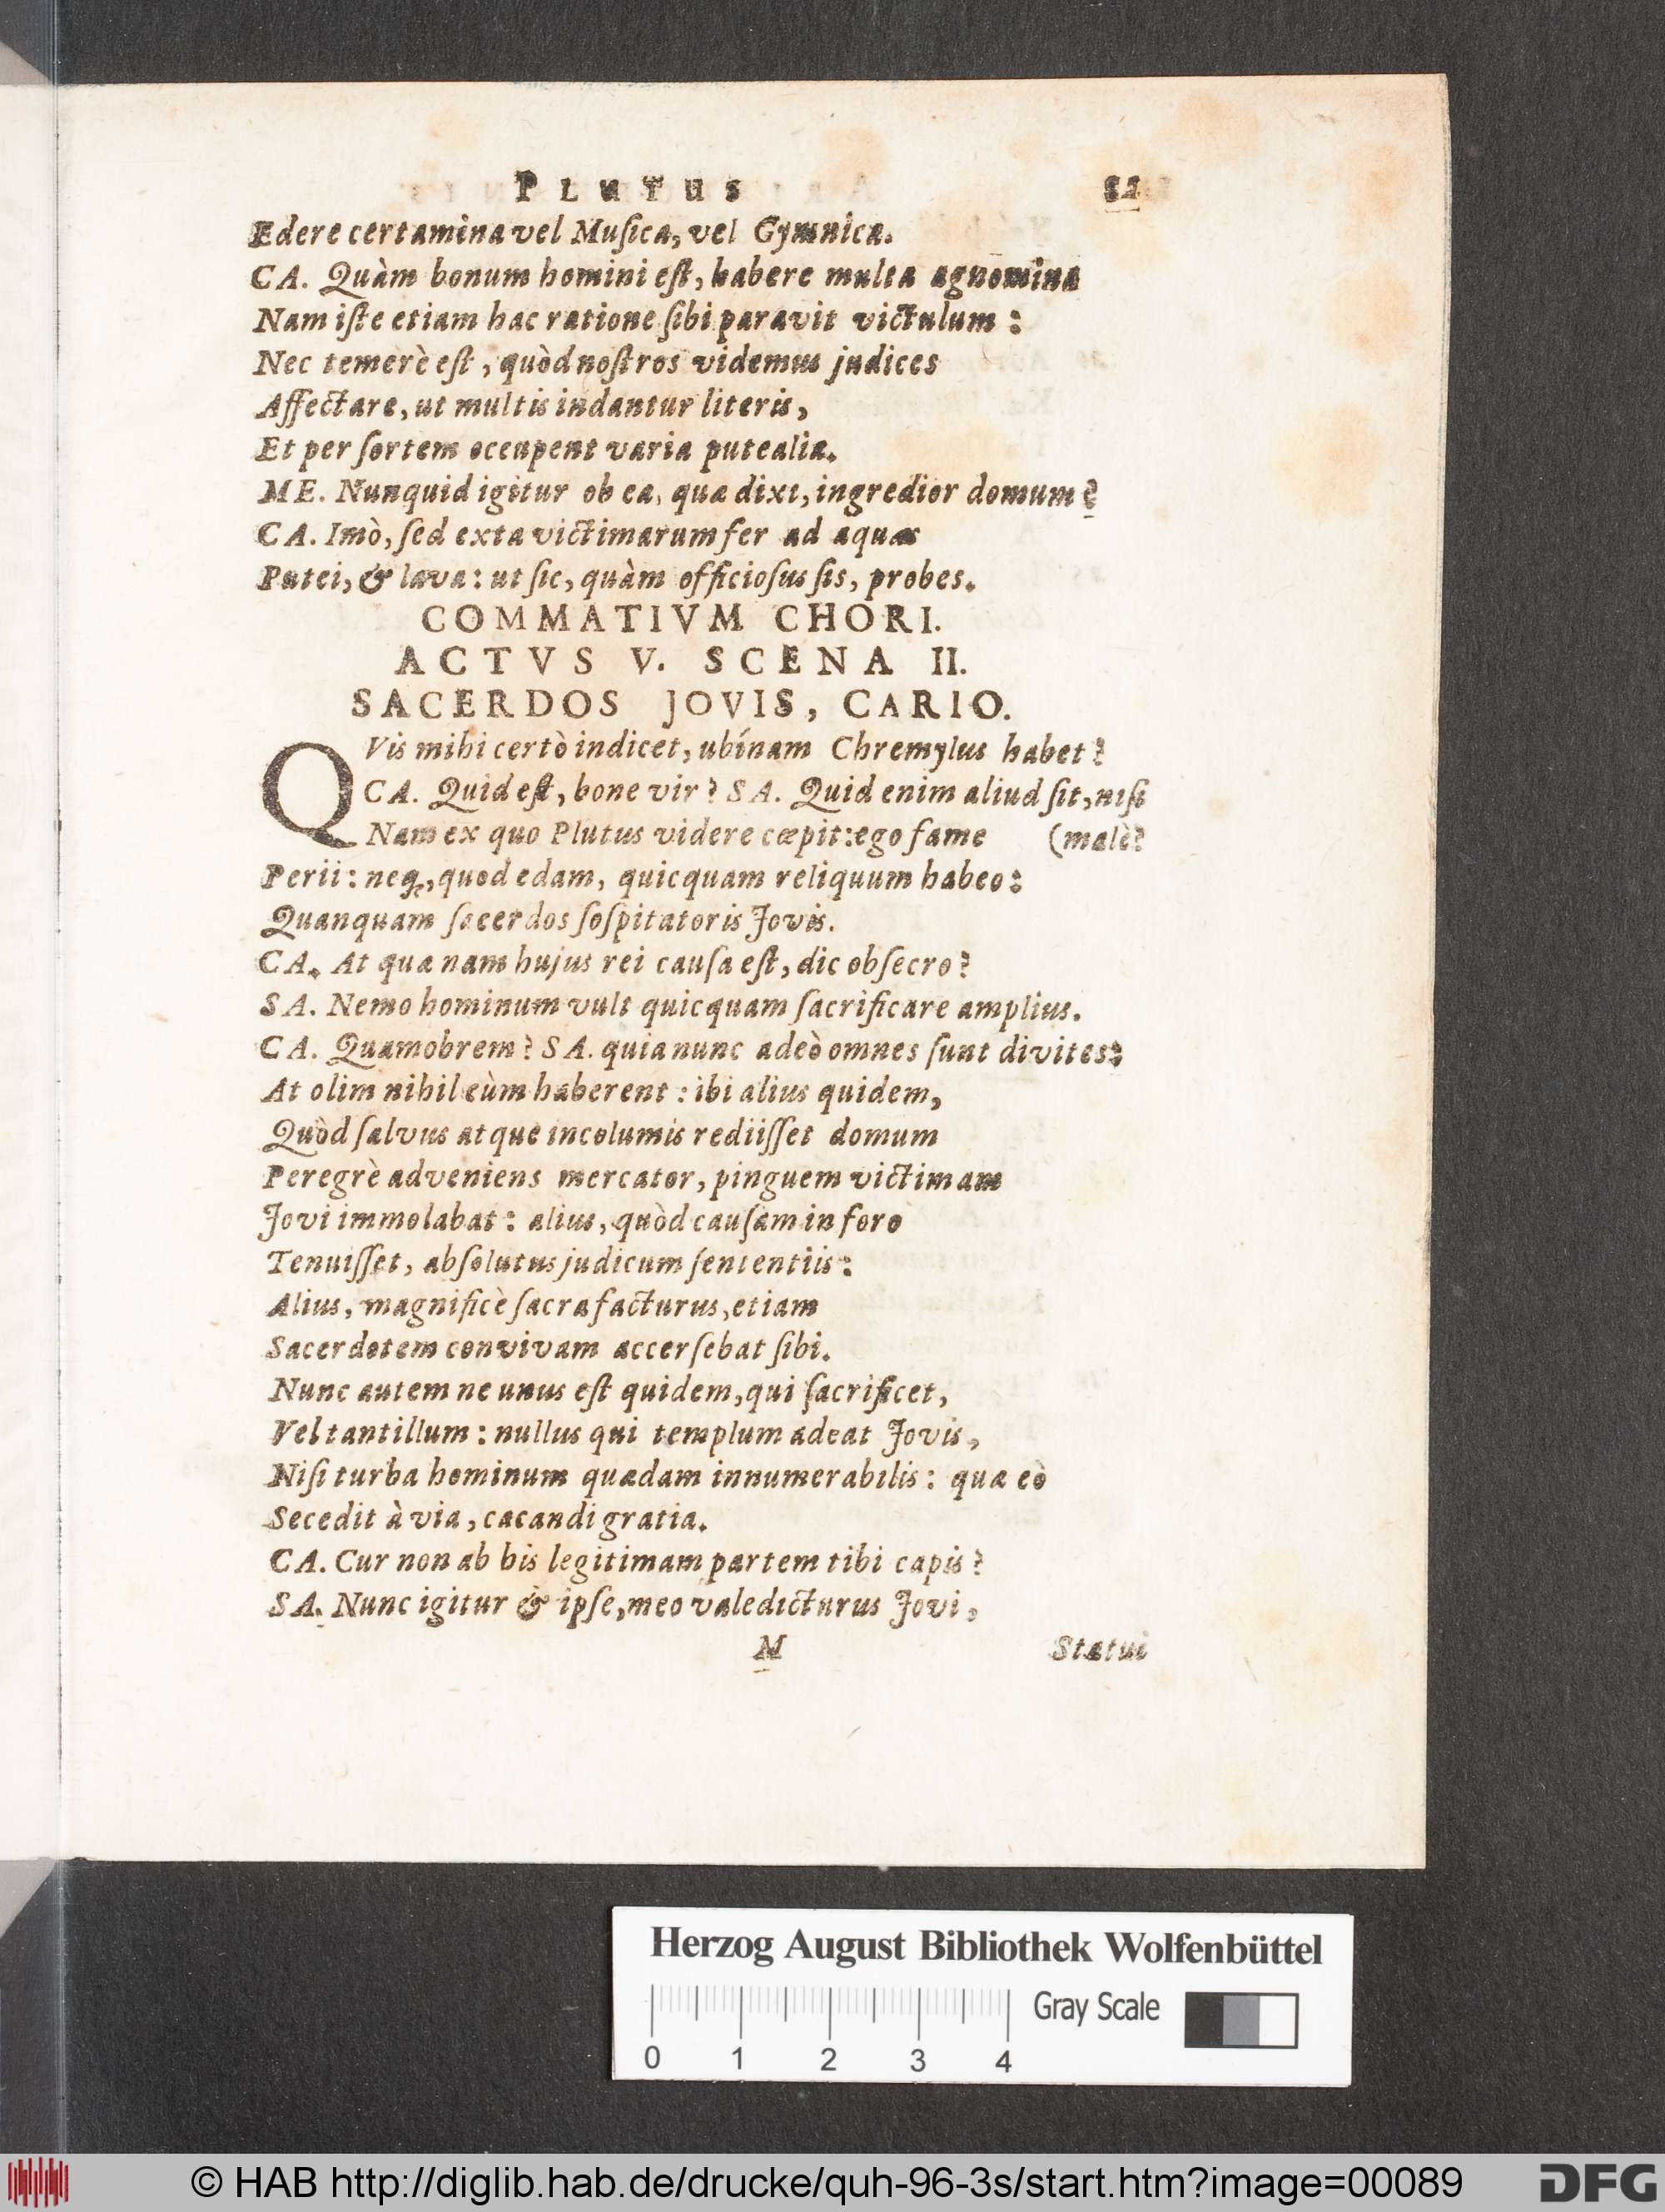 PLUTUS 81
Edere certamina vel Muſica, vel Gymnica.
CA. Quàm bonum homini eſt, habere multa agnomina
Nam iſte etiam hac ratione ſibi paravit victulum:
Nec temerè eſt, quòd noſtros videmus judices
Affectare, ut multis indantur literis,
Et per ſortem occupent varia putealia.
ME. Nunquid igitur ob ea, quæ dixi, ingredior domum?
CA. Imò, ſed exta victimarum fer ad aquas
Putei, & lava: ut ſic, quàm officioſus ſis, probes.
COMMATIVM CHORI.
ACTVS V. SCENA II.
SACERDOS JOVIS, CARIO.
QVis mihi certò indicet, ubínam Chremylus habet?
CA. Quid eſt, bone vir? SA. Quid enim aliud ſit, niſi
Nam ex quo Plutus videre cœpit: ego fame (malè?
Perii: neq;, quod edam, quicquam reliquum habeo:
Quanquam ſacerdos ſoſpitatoris Jovis.
CA. At quæ nam hujus rei cauſa eſt, dic obſecro?
SA. Nemo hominum vult quicquam ſacrificare amplius.
CA. Quamobrem? SA. quia nunc adeò omnes ſunt divites:
At olim nihil cùm haberent: ibi alius quidem,
Quòd ſalvus atque incolumis rediiſſet domum
Peregrè adveniens mercator, pinguem victimam
Jovi immolabat: alius, quòd cauſam in foro
Tenuiſſet, abſolutus judicum ſententiis:
Alius, magnificè ſacra facturus, etiam
Sacerdotem convivam accerſebat ſibi.
Nunc autem ne unus eſt quidem, qui ſacrificet,
Vel tantillum: nullus qui templum adeat Jovis,
Niſi turba hominum quædam innumerabilis: quæ eò
Secedit à via, cacandi gratia.
CA. Cur non ab his legitimam partem tibi capis?
SA. Nunc igitur & ipſe, meo valedicturus Jovi,
M Statui
Herzog August Bibliothek Wolfenbüttel
Gray Scale
0 1 2 3 4
© HAB http://diglib.hab.de/drucke/quh-96-3s/start.htm?image=00089
DFG